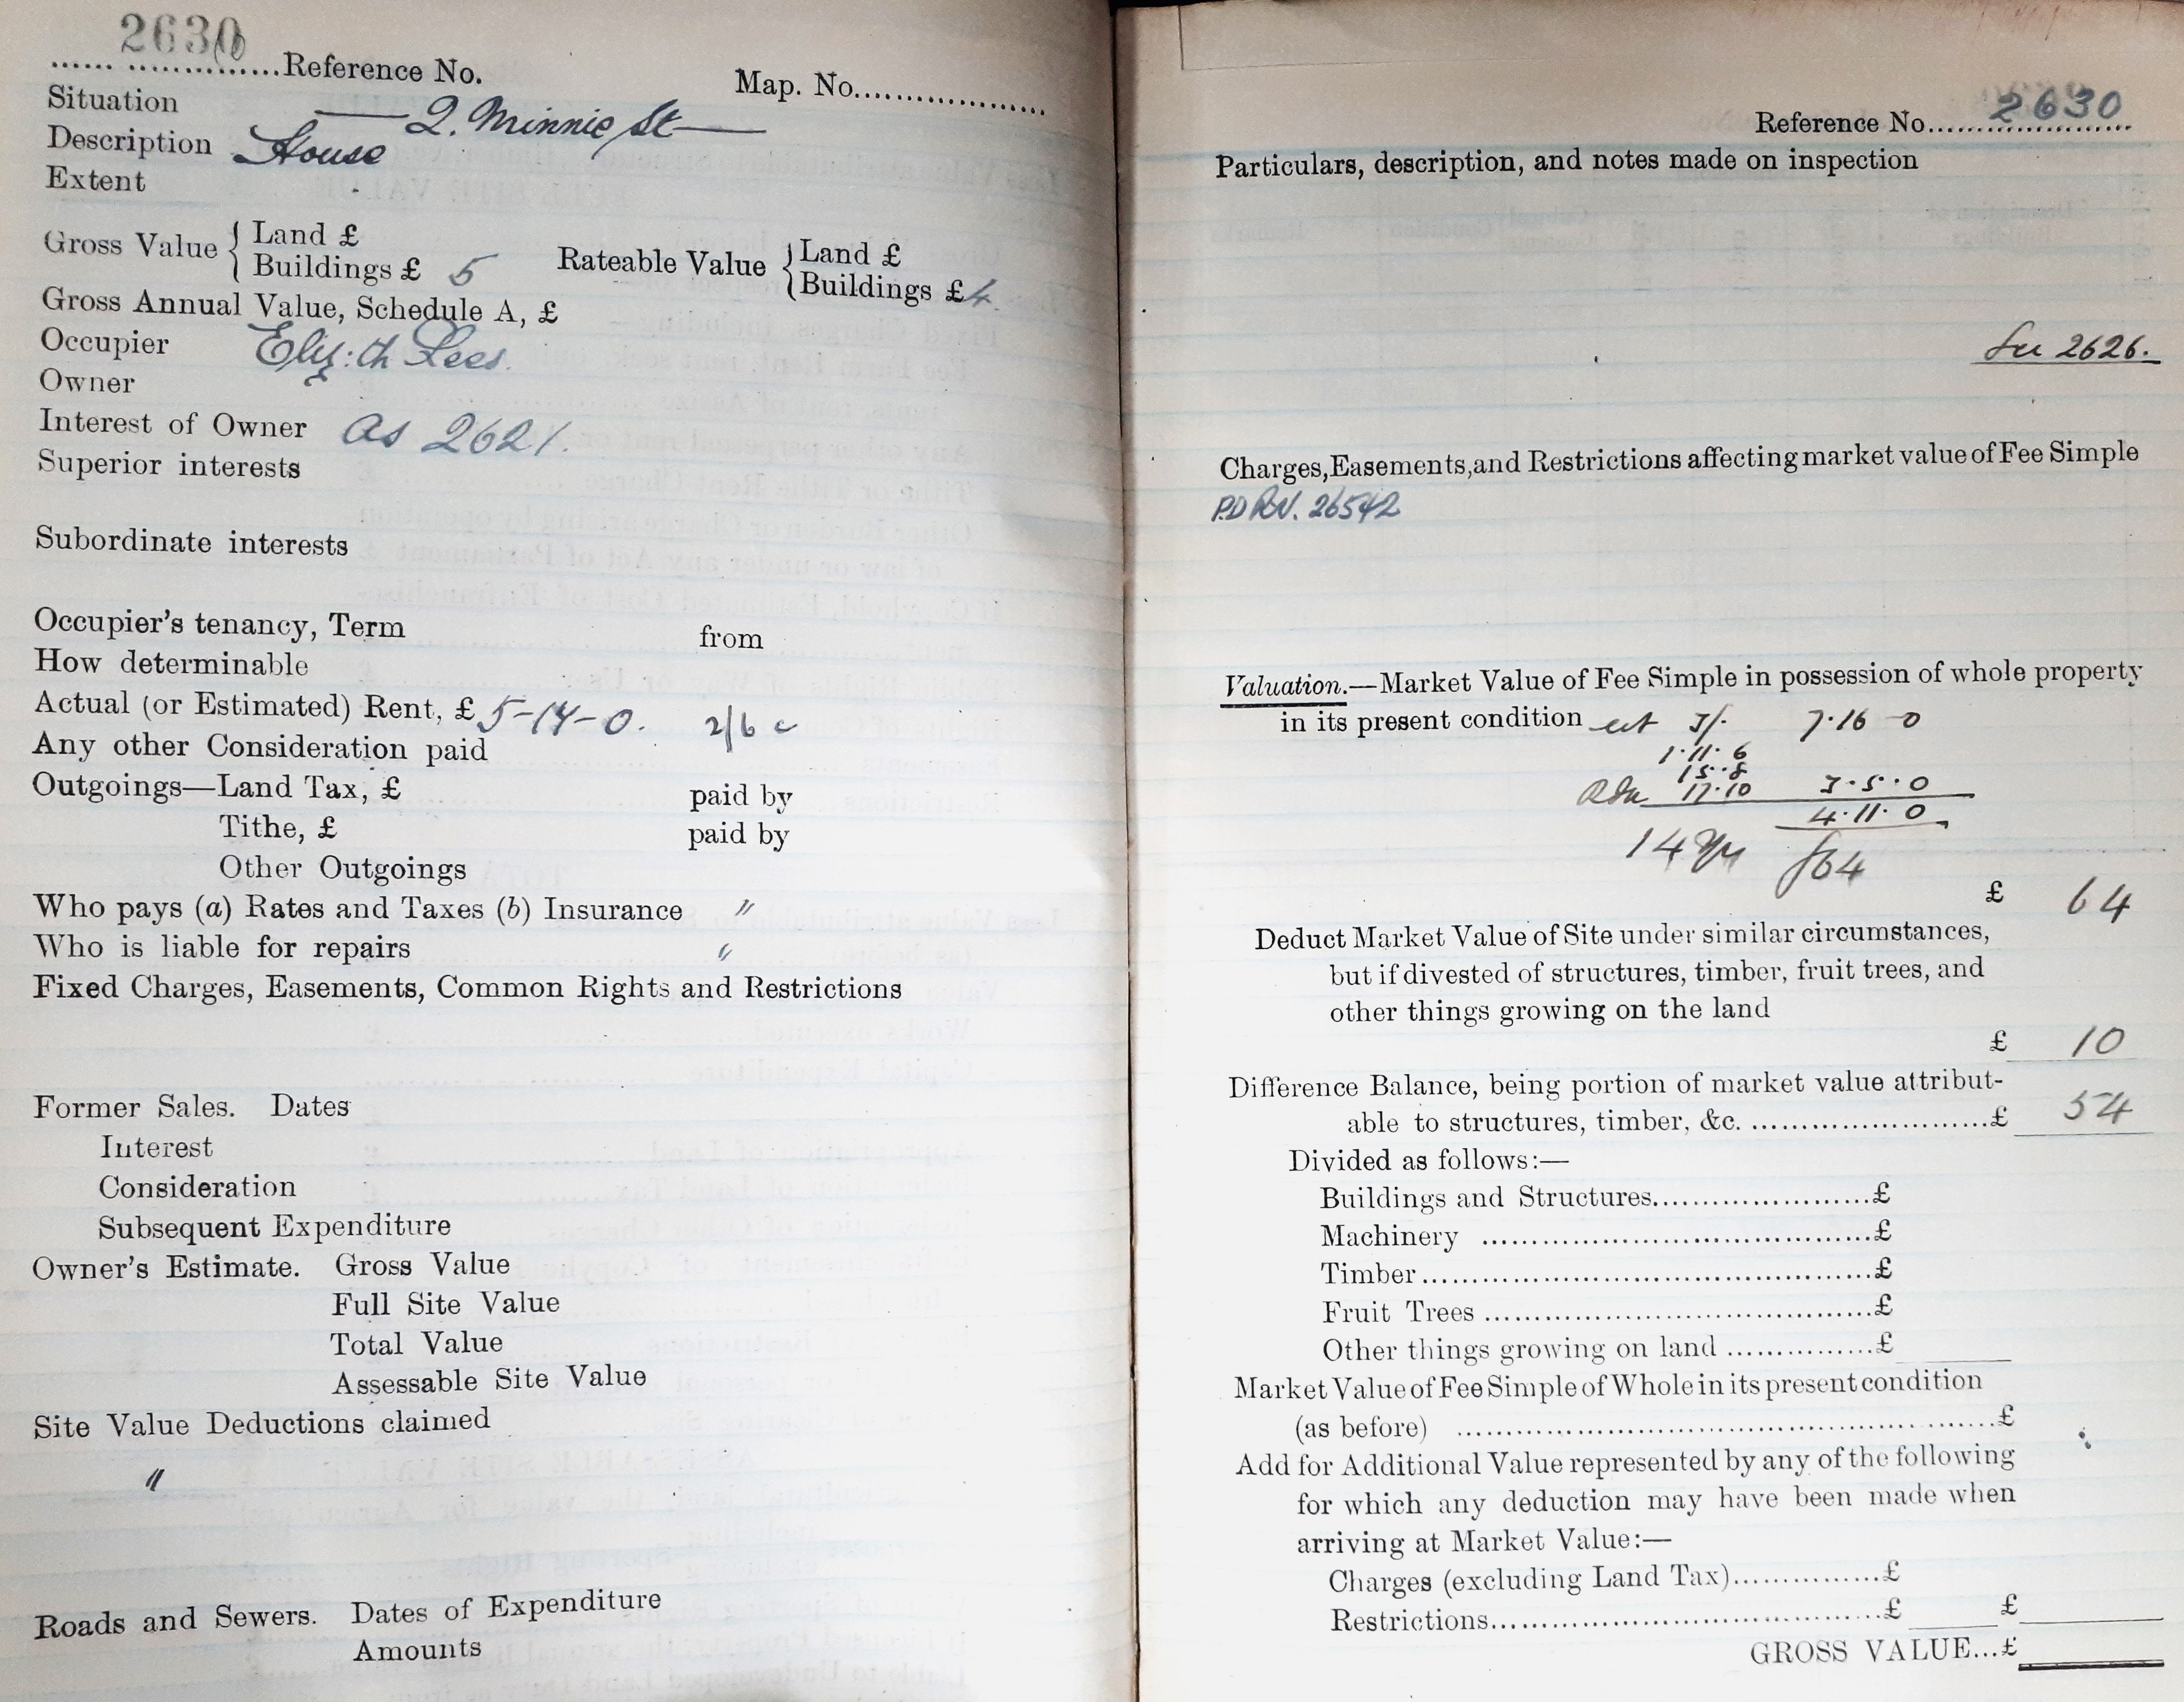 2630
...... ..............Reference No.
Map. No...................
Situation — 2. Minnie St —
Description House
Extent
Gross Value { Land £
Buildings £ 5
Rateable Value { Land £
Buildings £ 4
Gross Annual Value, Schedule A, £
Occupier Eliz:th Lees.
Owner
Interest of Owner as 2621.
Superior interests
Subordinate interests
Occupier's tenancy, Term from
How determinable
Actual (or Estimated) Rent, £ 5-14-0. 2/6
Any other Consideration paid
Outgoings—Land Tax, £ paid by
Tithe, £ paid by
Other Outgoings
Who pays (a) Rates and Taxes (b) Insurance "
Who is liable for repairs "
Fixed Charges, Easements, Common Rights and Restrictions
Former Sales. Dates
Interest
Consideration
Subsequent Expenditure
Owner's Estimate. Gross Value
Full Site Value
Total Value
Assessable Site Value
Site Value Deductions claimed
"
Roads and Sewers. Dates of Expenditure
Amounts
Reference No. 2630
Particulars, description, and notes made on inspection
See 2626.
Charges, Easements, and Restrictions affecting market value of Fee Simple
P.D RN. 26542
Valuation.—Market Value of Fee Simple in possession of whole property
in its present condition est 3/- 7·16 -0
1·11·6
15·8
17·10 3·5·0
4·11·0
14 yrs £64
£ 64
Deduct Market Value of Site under similar circumstances,
but if divested of structures, timber, fruit trees, and
other things growing on the land
£ 10
Difference Balance, being portion of market value attribut-
able to structures, timber, &c. ........................£ 54
Divided as follows:—
Buildings and Structures......................£
Machinery .......................................£
Timber.............................................£
Fruit Trees .......................................£
Other things growing on land ...............£
Market Value of Fee Simple of Whole in its present condition
(as before) ......................................................£
Add for Additional Value represented by any of the following
for which any deduction may have been made when
arriving at Market Value:—
Charges (excluding Land Tax)...............£
Restrictions.......................................£ £
GROSS VALUE...£